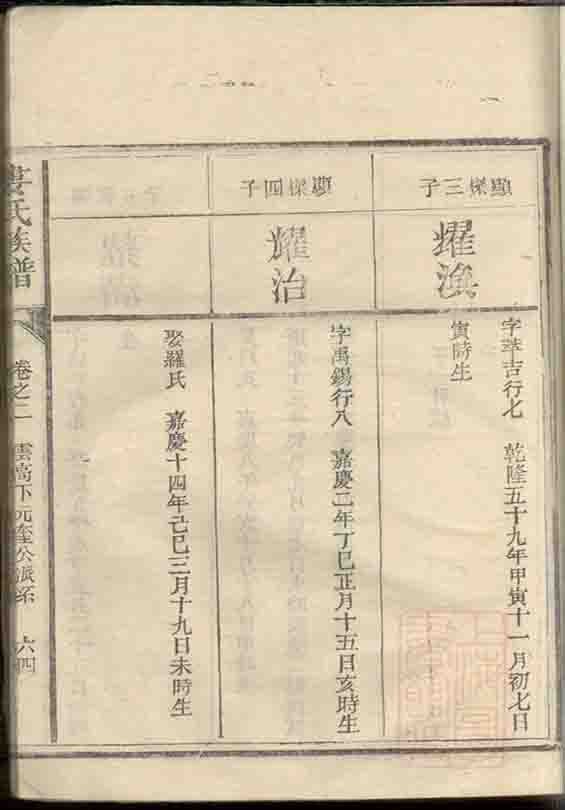 顯樑三子
耀漁
字萃吉行七　乾隆五十九年甲寅十一月初七日
寅時生
顯樑四子
耀治
字禹錫行八　嘉慶二年丁巳正月十五日亥時生
娶羅氏　嘉慶十四年己巳三月十九日未時生
氏族譜
卷之二　雲高下元奎公派系　六四